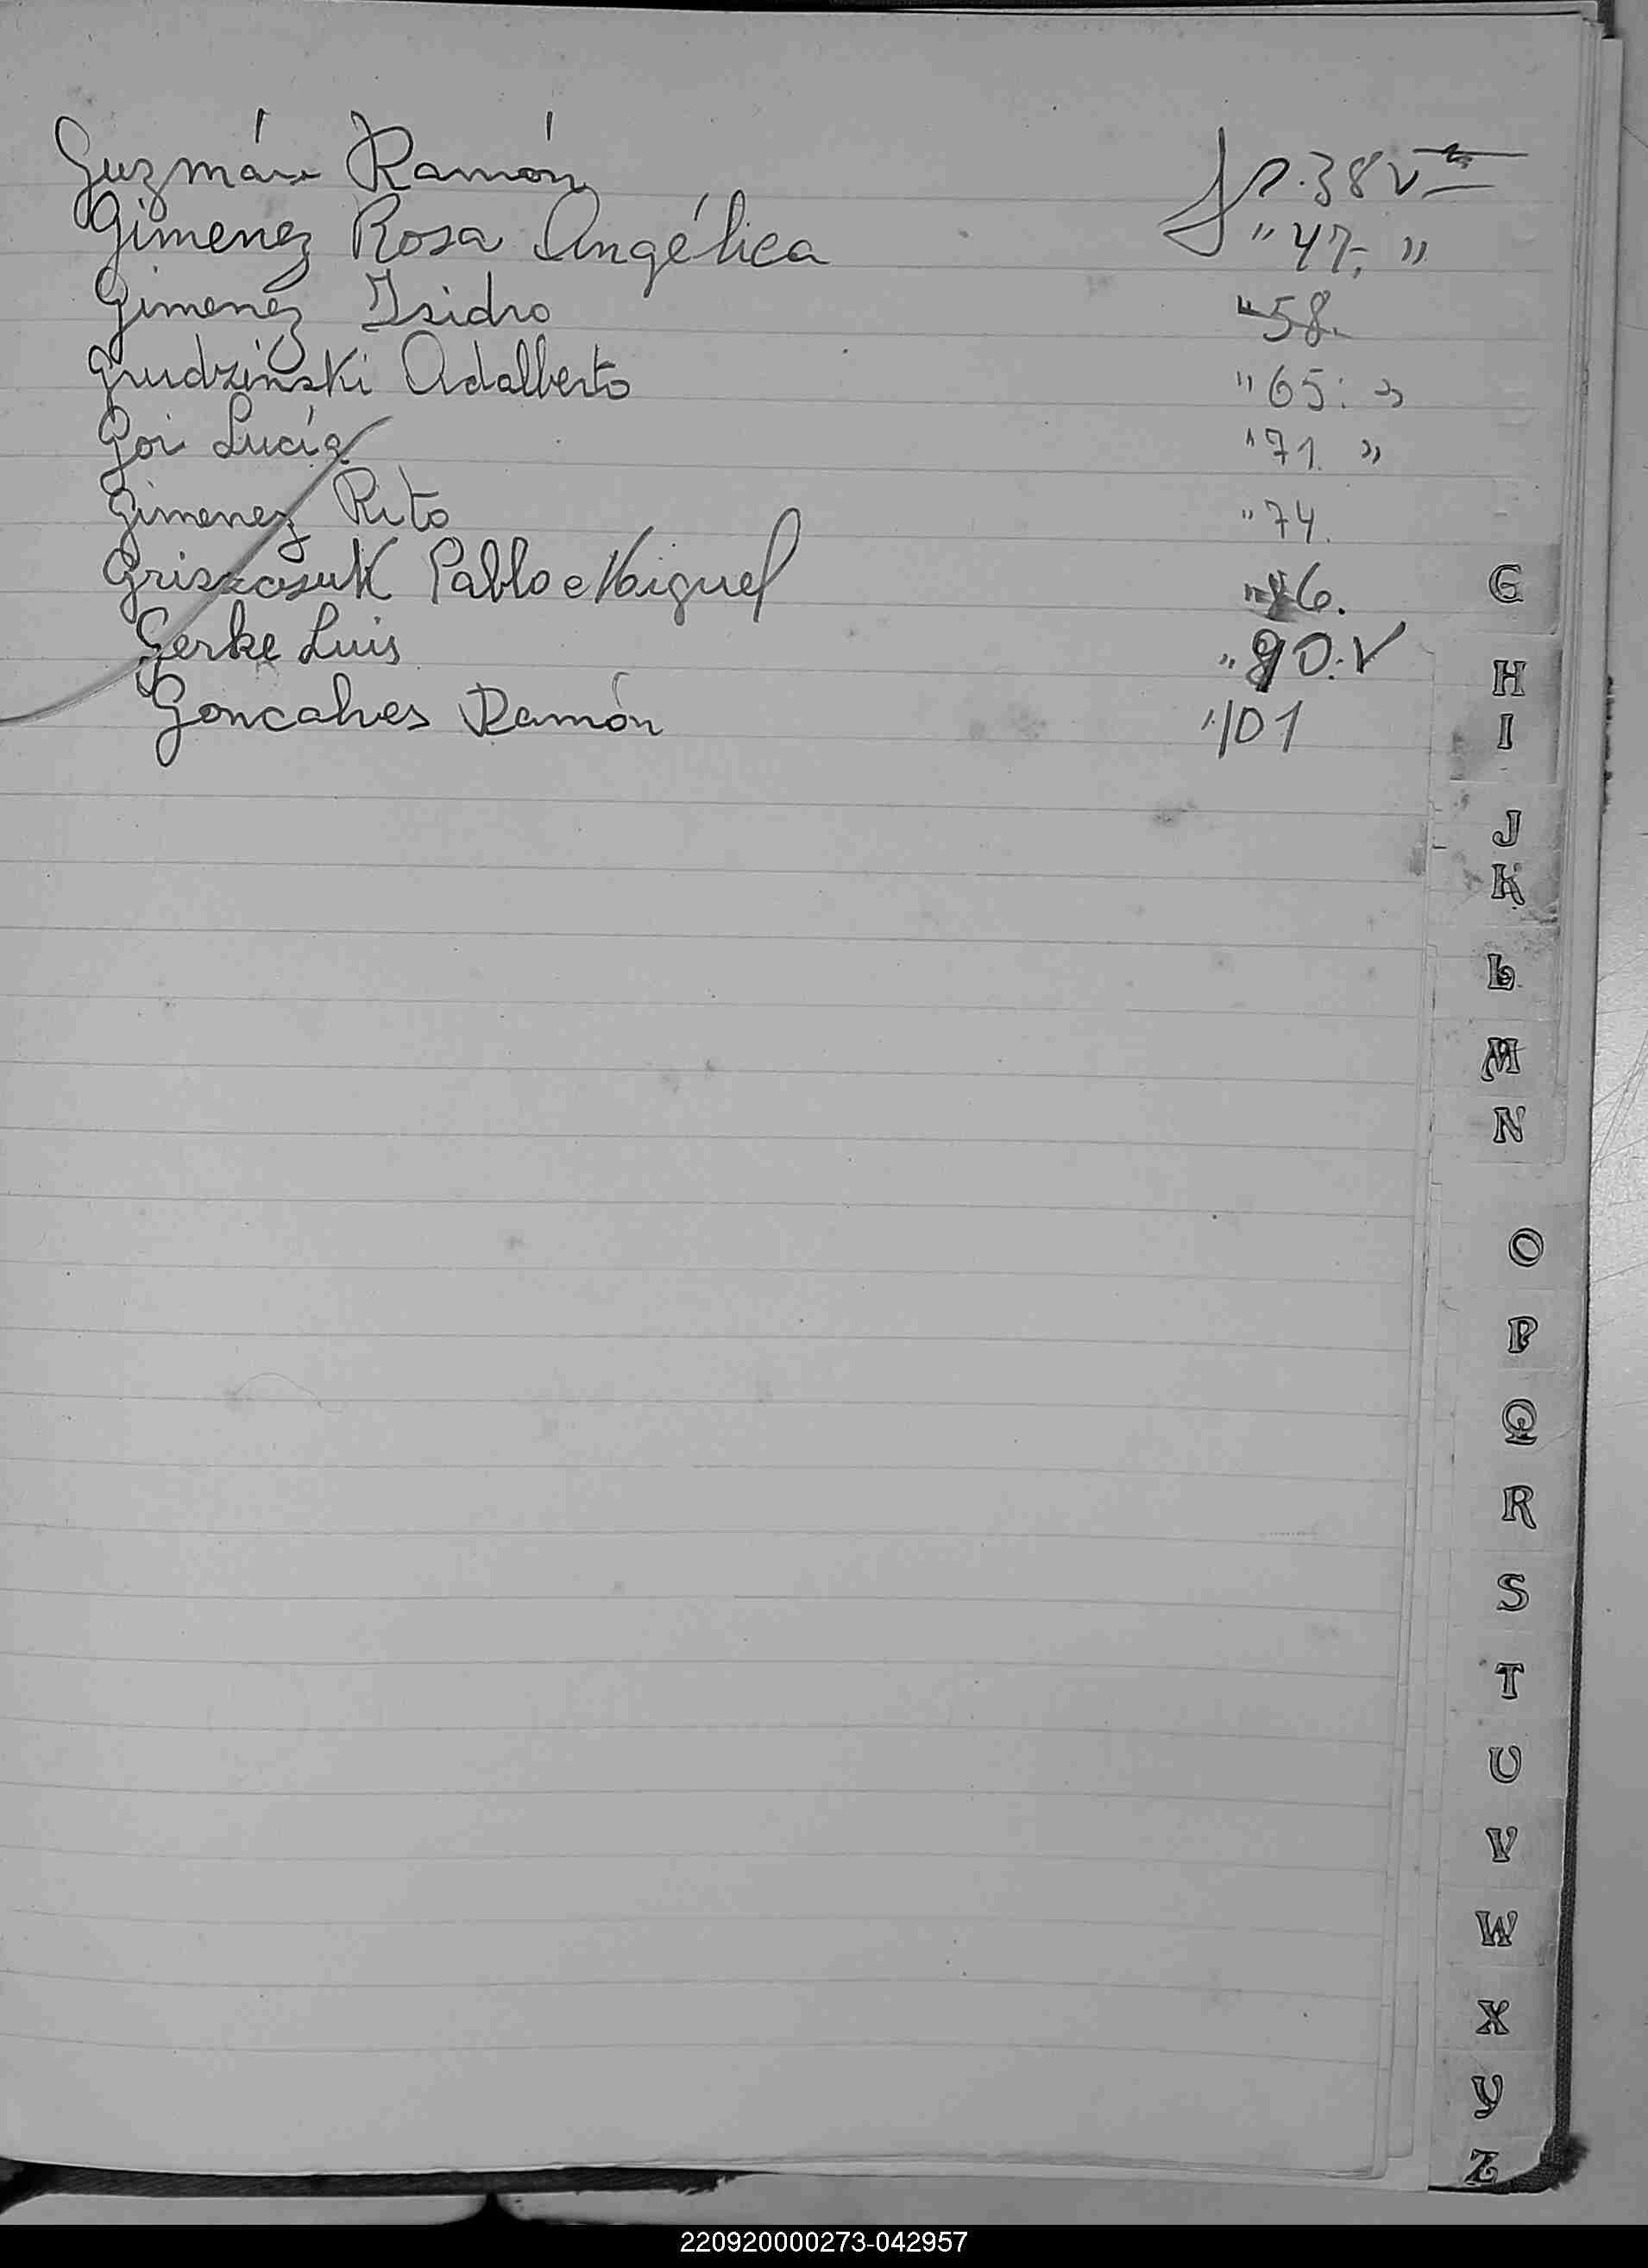 Guzmán Ramón fs. 38 v
Gimenez Rosa Angélica " 47. "
Gimenez Isidro " 58.
Grudzinski Adalberto " 65. "
Goi Lucía " 71. "
Gimenez Rito " 74.
Pablo Miguel 6.
Gerke Luis " 90. V
Goncalves Ramón " 101
G
H
I
J
K
L
M
N
O
P
Q
R
S
T
U
V
W
X
Y
Z
220920000273-042957